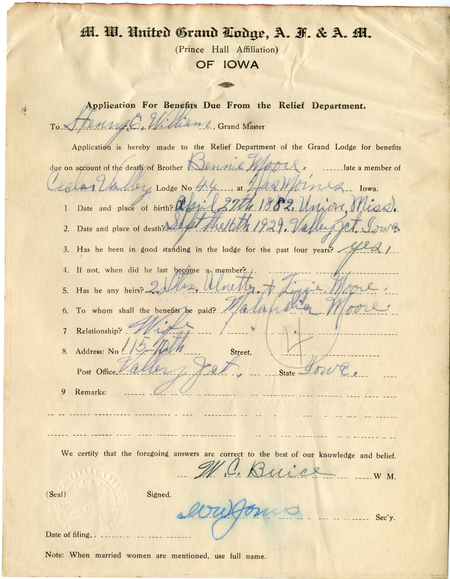 M. W. United Grand Lodge, A. F. & A. M.
(Prince Hall Affiliation)
OF IOWA
Application For Benefits Due From the Relief Department.
To Henry E. Williams, Grand Master
Application is hereby made to the Relief Department of the Grand Lodge for benefits
due on account of the death of Brother Bennie Moore. late a member of
Cedar Valley Lodge No 44 at Des Moines Iowa.
1 Date and place of birth? April 27th 1882. Union, Miss.
2 Date and place of death? Sept the 16th 1929. Valley Jct, Iowa
3 Has he been in good standing in the lodge for the past four years? yes,
4 If not, when did he last become a member?
5 Has he any heirs? 2 Alnetta & Lizzie Moore.
6 To whom shall the benefits be paid? Malandia Moore
7 Relationship? Wife
4
8 Address: No 115 Street,
Post Office, Valley Jct. State Iowa.
9 Remarks:
We certify that the foregoing answers are correct to the best of our knowledge and belief.
W. C. Buice W M.
(Seal) Signed.
W W Jones Sec'y.
Date of filing
Note: When married women are mentioned, use full name.